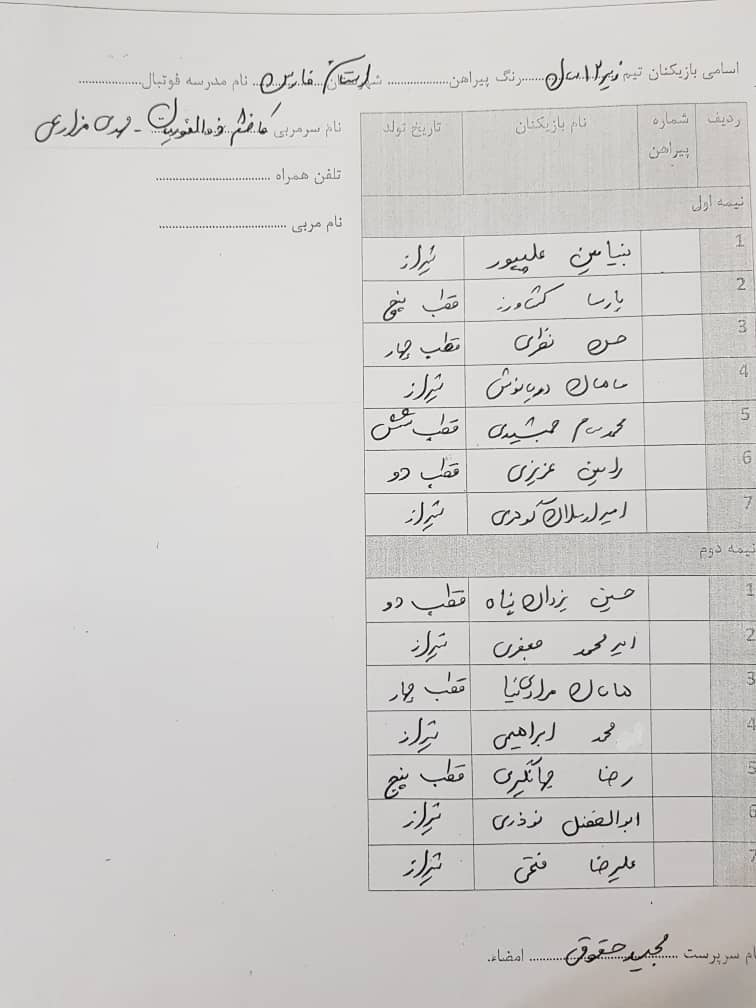 اسامی بازیکنان تیم زیر ۱۲ سال رنگ پیراهن .................. شهرستان استان فارس نام مدرسه فوتبال ..................
نام سرمربی کاظم ذوالفقاریان - مهدی مزارعی
تلفن همراه ..............................
نام مربی ..................................
ردیف شماره پیراهن نام بازیکنان تاریخ تولد
نیمه اول
1 بنیامین علیپور شیراز
2 پارسا کشاورز قطب پنج
3 حسن نظری قطب چهار
4 ماهان شیراز
5 محمد سام جمشیدی قطب شش
6 رامین عزیزی قطب دو
7 امیر ارسلان گودرزی شیراز
نیمه دوم
1 حسین یزدان پناه قطب دو
2 امیر محمد جعفری شیراز
3 ماهان مرادی نیا قطب چهار
4 محمد ابراهیمی شیراز
5 رضا جهانگیری قطب پنج
6 ابوالفضل نوذری شیراز
7 علیرضا فتحی شیراز
نام سرپرست مجید حقوقی امضاء.